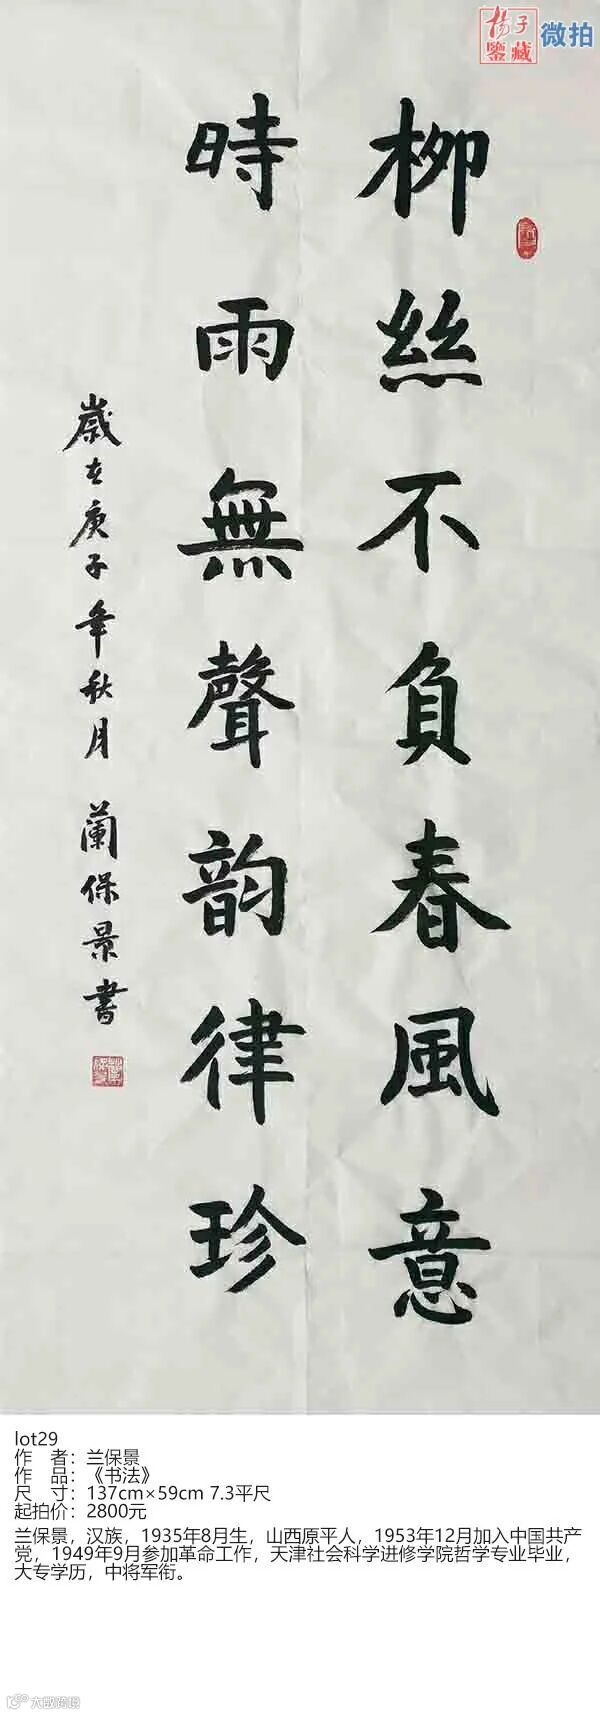 扬子鉴藏 微拍
柳絲不負春風意
時雨無聲韵律珍
歲在庚子年秋月 蘭保景書
lot29
作 者：兰保景
作 品：《书法》
尺 寸：137cm×59cm 7.3平尺
起拍价：2800元
兰保景，汉族，1935年8月生，山西原平人，1953年12月加入中国共产
党，1949年9月参加革命工作，天津社会科学进修学院哲学专业毕业，
大专学历，中将军衔。